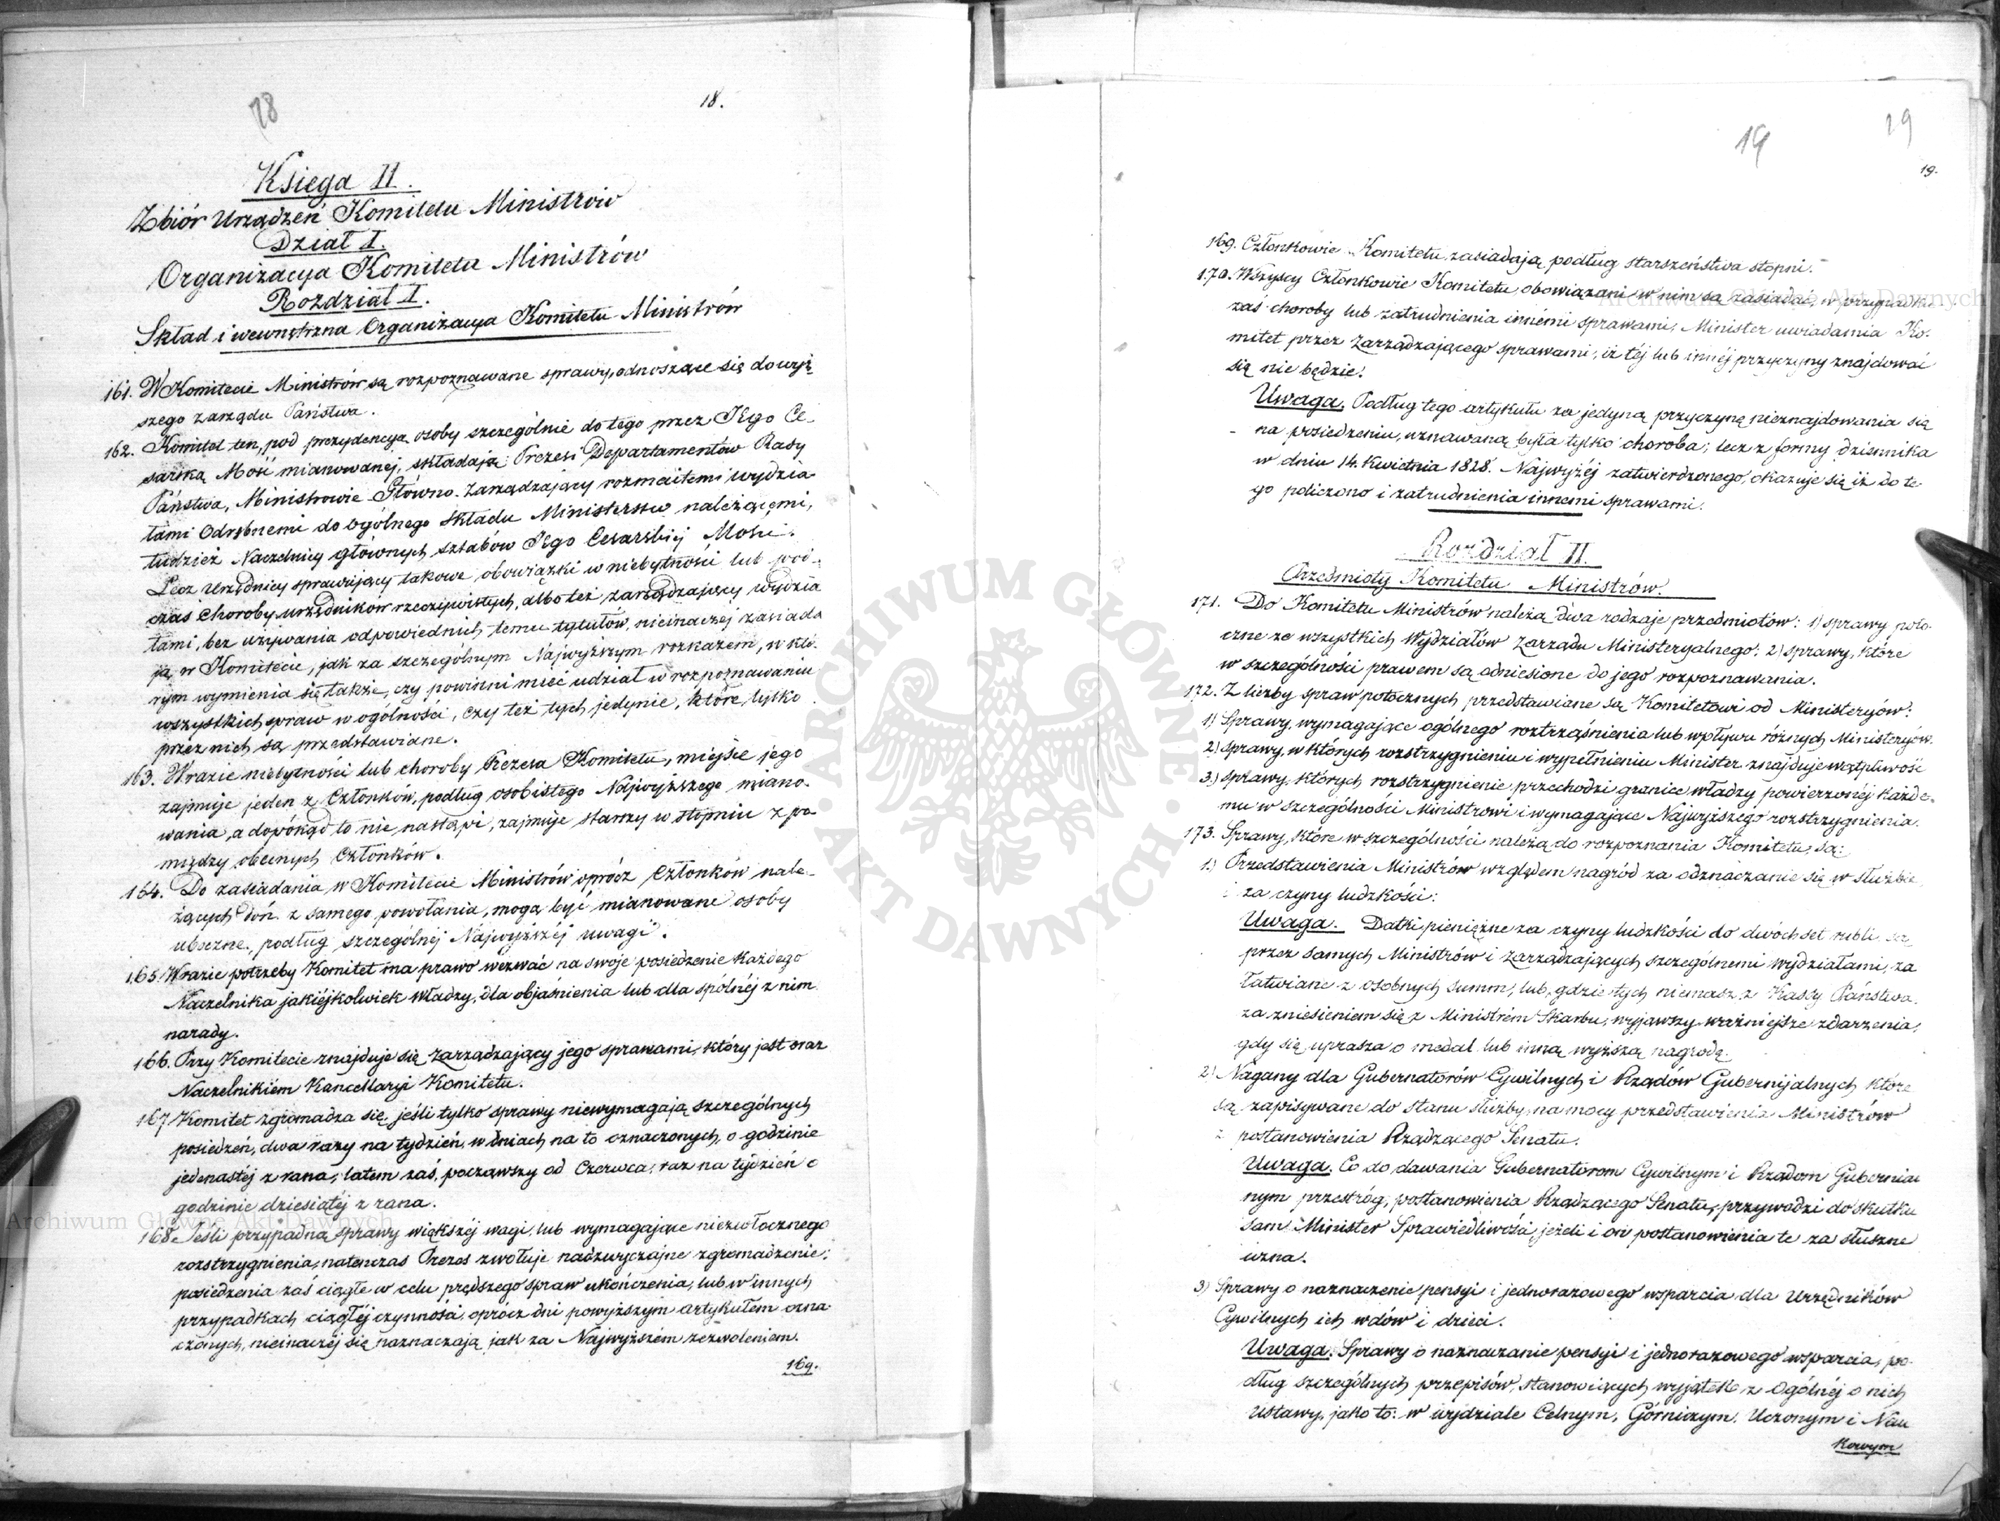 18
18.
Księga II.
Zbiór Urządzeń Komitetu Ministrów
Dział I.
Organizacya Komitetu Ministrów
Rozdział I.
Skład i wewnętrzna Organizacya Komitetu Ministrów
161. W Komitecie Ministrów są rozpoznawane sprawy, odnoszące się do wyż
szego zarządu Państwa.
162. Komitet ten, pod prezydencyą osoby szczególnie do tego przez Jego Ce-
sarską Mość mianowanej, składają: Prezesi Departamentów Rady
Państwa, Ministrowie Główno-Zarządzający rozmaitemi wydzia-
łami odrębnemi do ogólnego składu Ministerstw należącemi,
tudzież Naczelnicy głównych sztabów Jego Cesarskiej Mości.
Lecz Urzędnicy sprawujący takowe obowiązki w niebytności lub pod-
czas choroby urzędników rzeczywistych, albo też, zarządzający wydzia
łami, bez używania odpowiednich temu tytułów, nieinaczej zasiada
ją w Komitecie, jak za szczególnym Najwyższym rozkazem, w któ-
rym wymienia się także, czy powinni mieć udział w rozpoznawaniu
wszystkich spraw w ogólności, czy też tych jedynie, które tylko
przez nich są przedstawiane.
163. W razie niebytności lub choroby Prezesa Komitetu, miejsce jego
zajmuje jeden z Członków, podług osobistego Najwyższego miano-
wania, a dopókąd to nie nastąpi, zajmuje starszy w stopniu z po-
między obecnych Członków.
164. Do zasiadania w Komitecie Ministrów oprócz Członków nale-
żących doń z samego powołania, mogą być mianowane osoby
uboczne, podług szczególnej Najwyższej uwagi.
165. W razie potrzeby Komitet ma prawo wezwać na swoje posiedzenie każdego
Naczelnika jakiejkolwiek władzy, dla objaśnienia lub dla spólnéj z nim
narady.
166. Przy Komitecie znajduje się Zarządzający jego sprawami, który jest oraz
Naczelnikiem Kancellaryi Komitetu.
167 Komitet zgromadza się, jeśli tylko sprawy niewymagają szczególnych
posiedzeń, dwa razy na tydzień, w dniach na to oznaczonych, o godzinie
jedenastéj z rana, latem zaś, począwszy od Czerwca, raz na tydzień o
godzinie dziesiątéj z rana.
168. Jeśli przypadną sprawy większéj wagi, lub wymagające niezwłocznego
rozstrzygnienia, natenczas Prezes zwołuje nadzwyczajne zgromadzenie;
posiedzenia zaś ciągłe w celu prędszego spraw ukończenia, lub w innych
przypadkach ciągłéj czynności, oprócz dni powyższym artykułem ozna-
czonych, nieinaczéj się naznaczają, jak za Najwyższém zezwoleniem.
169.
19
19
19.
169. Członkowie Komitetu zasiadają podług starszeństwa stopni.
170. Wszyscy Członkowie Komitetu obowiązani w nim są zasiadać, w przypadku
zaś choroby lub zatrudnienia innémi sprawami, Minister uwiadamia Ko-
mitet przez Zarządzającego sprawami, iż téj lub innéj przyczyny znajdować
się nie będzie.
Uwaga. Podług tego artykułu za jedyną przyczynę nieznajdowania się
na posiedzeniu, uznawaną była tylko choroba; lecz z formy dziennika
w dniu 14. Kwietnia 1828. Najwyżéj zatwierdzonego, okazuje się iż do te
go policzono i zatrudnienia innemi sprawami.
Rozdział II.
Przedmioty Komitetu Ministrów.
171. Do Komitetu Ministrów należą dwa rodzaje przedmiotów: 1) sprawy poto-
czne ze wszystkich Wydziałów Zarządu Ministeryalnego; 2) sprawy, które
w szczególności prawem są odniesione do jego rozpoznawania.
172. Z liczby spraw potocznych przedstawiane są Komitetowi od Ministeryów:
1) Sprawy, wymagające ogólnego roztrząśnienia lub wpływu różnych Ministeryów.
2) sprawy, w których rozstrzygnieniu i wypełnieniu Minister znajduje wątpliwość
3) sprawy, których rozstrzygnienie przechodzi granice władzy powierzonéj każde-
mu w szczególności Ministrowi i wymagające Najwyższego rozstrzygnienia.
173. Sprawy, które w szczególności należą do rozpoznania Komitetu, są:
1.) Przedstawienia Ministrów względem nagród za odznaczanie się w służbie
i za czyny ludzkości:
Uwaga. Datki pieniężne za czyny ludzkości do dwóchset rubli, są
przez samych Ministrów i zarządzających szczególnemi wydziałami, za
łatwiane z osobnych summ, lub, gdzie tych niemasz, z Kassy Państwa,
za zniesieniem się z Ministrem Skarbu, wyjąwszy ważniejsze zdarzenia,
gdy się uprasza o medal lub inną wyższą nagrodę.
2.) Nagany dla Gubernatorów Cywilnych i Rządów Gubernijalnych, które
są zapisywane do stanu służby, na mocy przedstawienia Ministrów
z postanowienia Rządzącego Senatu.
Uwaga. Co do dawania Gubernatorom Cywilnym i Rządom Gubernial
nym przestróg, postanowienia Rządzącego Senatu, przywodzi do skutku
sam Minister Sprawiedliwości, jeżeli i on postanowienia te za słuszne
uzna.
3) Sprawy o naznaczenie pensyi i jednorazowego wsparcia dla Urzędników
Cywilnych ich wdów i dzieci.
Uwaga. Sprawy o naznaczanie pensyi i jednorazowego wsparcia, po-
dług szczególnych przepisów, stanowiących wyjątek z Ogólnéj o nich
Ustawy, jako to: w wydziale Celnym, Górniczym, Uczonym i Nau
kowym
ARCHIWUM GŁÓWNE AKT DAWNYCH
Archiwum Główne Akt Dawnych
Archiwum Główne Akt Dawnych